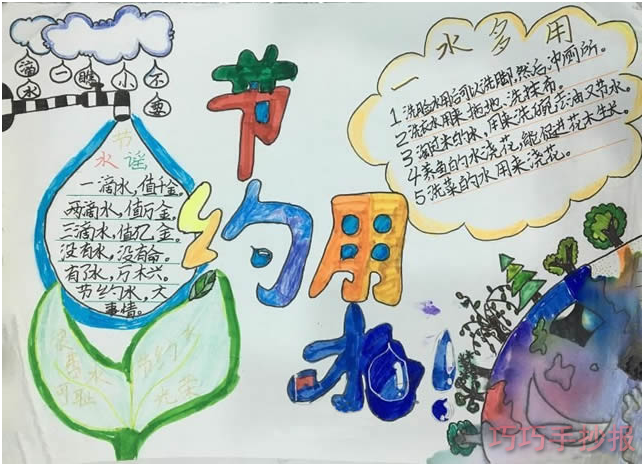 不要小瞧一滴水
节约用水!
一水多用
1 洗脸水用后可以洗脚,然后冲厕所。
2 洗衣水用来拖地、洗抹布。
3 淘过米的水,用来洗碗去油又节水。
4 养鱼的水浇花,能促进花木生长。
5 洗菜的水用来浇花。
节
水谣
一滴水,值千金。
两滴水,值万金。
三滴水,值亿金。
没有水,没有命。
有了水,万木兴。
节约水,大
事情。
浪
费水
可耻
节约水
光荣
巧巧手抄报